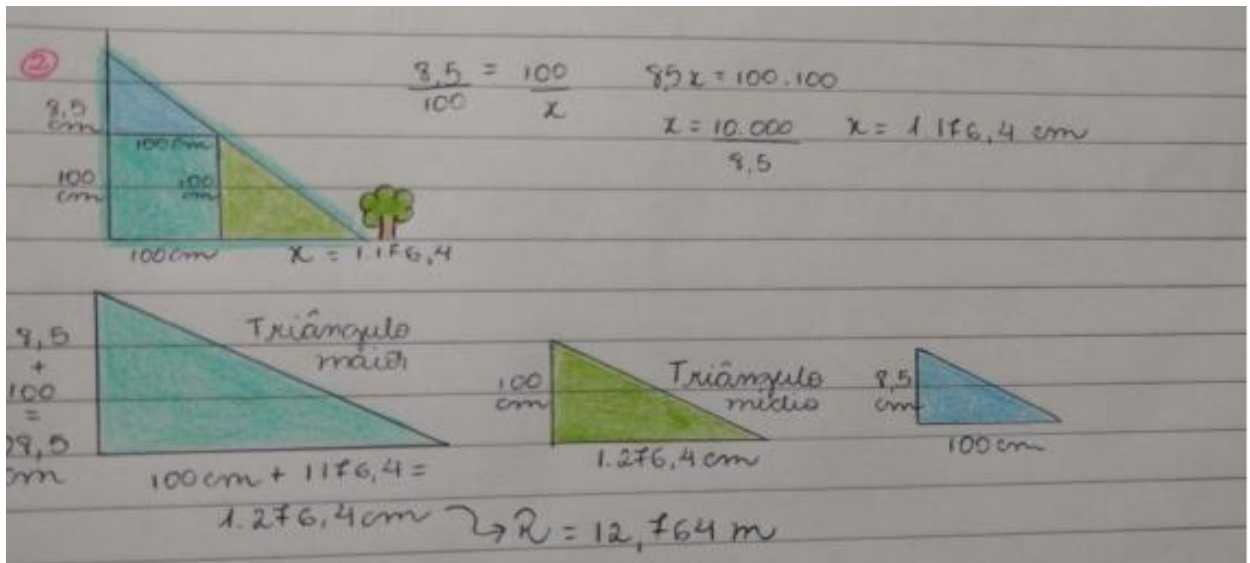 2
8,5 cm
100 cm
100 cm
100 cm
100 cm
x = 1.176,4
8,5/100 = 100/x
8,5x = 100.100
x = 10.000/8,5
x = 1.176,4 cm
8,5
+
100
=
08,5
cm
Triângulo
maior
100 cm + 1176,4 =
1.276,4 cm
R = 12,764 m
100
cm
Triângulo
médio
1.276,4 cm
8,5
cm
100 cm